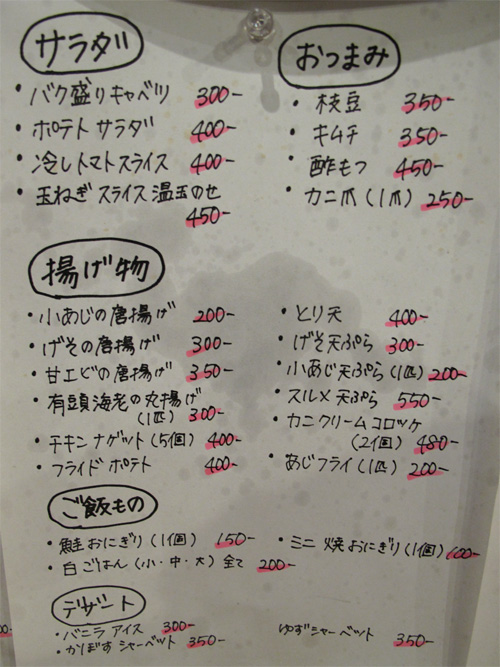 サラダ
・バク盛りキャベツ 300-
・ポテトサラダ 400-
・冷しトマトスライス 400-
・玉ねぎスライス温玉のせ
450-
おつまみ
・枝豆 350-
・キムチ 350-
・酢もつ 450-
・カニ爪(1爪) 250-
揚げ物
・小あじの唐揚げ 200-
・げその唐揚げ 300-
・甘エビの唐揚げ 350-
・有頭海老の丸揚げ
(1匹) 300-
・チキンナゲット(5個) 400-
・フライドポテト 400-
・とり天 400-
・げそ天ぷら 300-
・小あじ天ぷら(1匹) 200-
・スルメ天ぷら 550-
・カニクリームコロッケ
(2個) 480-
・あじフライ(1匹) 200-
ご飯もの
・鮭おにぎり(1個) 150-
・白ごはん(小・中・大)全て 200-
・ミニ焼おにぎり(1個) 100-
デザート
・バニラアイス 300-
・かぼすシャーベット 350-
ゆずシャーベット 350-